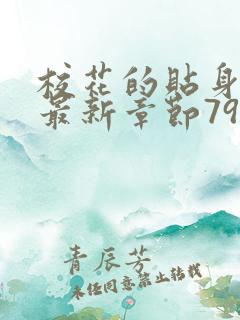 校花的贴身
最新章节79
青辰芳
未经同意禁止转载